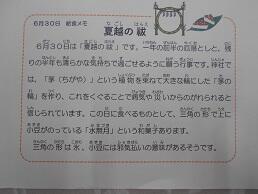 6月30日 給食メモ
夏越の祓
なごし はらえ
6月30日は「夏越の祓」です。一年の前半の厄落としと、残
りの半年も清らかな気持ちで過ごせるように願う行事です。神社で
は、「茅（ちがや）」という植物を束ねて大きな輪にした「茅の
輪」を作り、これをくぐることで病気や災いからのがれられると
信じられています。この日に食べるものとして、三角の形で上に
小豆がのっている「水無月」という和菓子あります。
三角の形は氷、小豆には邪気払いの意味があるそうです。